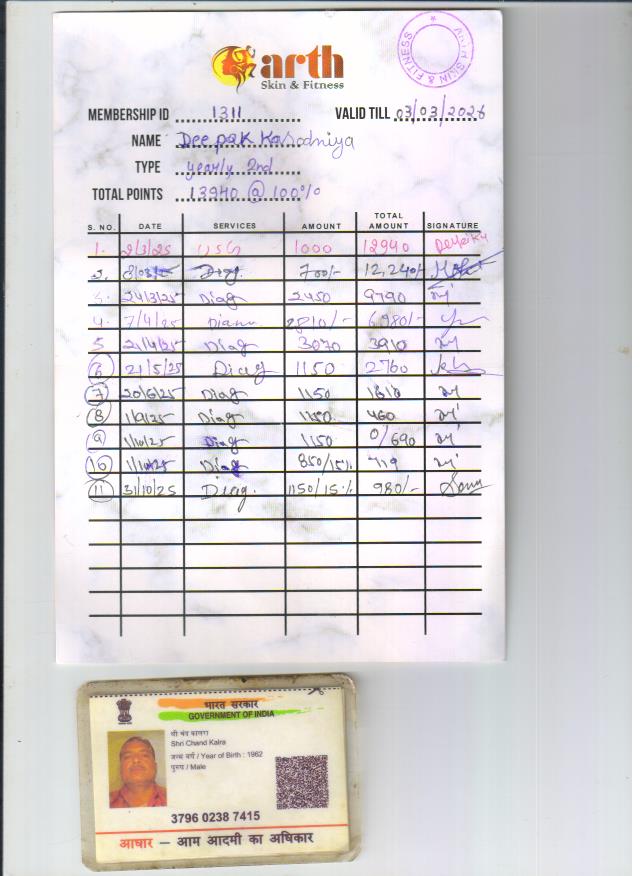 arth
Skin & Fitness
SKIN & FITNESS
MEMBERSHIP ID 1311 VALID TILL 03/03/2026
NAME Deepak
TYPE yearly 2nd
TOTAL POINTS 13940 @ 100%
S. NO. DATE SERVICES AMOUNT TOTAL AMOUNT SIGNATURE
1. 2/3/25 USG 1000 12940
2. Diag. 700/- 12,240/-
24/3/25 Diag 2450 9790
4. 7/4/25 2810/- 6980/-
5 21/4/25 Diag 3070 3910
6 21/5/25 Diag 1150 2760
7 20/6/25 Diag 1150 1610
8 1/9/25 Diag 1150 460
9 1/10/25 Diag 1150 0/690
10 Diag 850/15% 719
11 31/10/25 Diag. 1150/15% 980/-
भारत सरकार
GOVERNMENT OF INDIA
श्री चंद कालरा
Shri Chand Kalra
जन्म वर्ष / Year of Birth : 1962
पुरुष / Male
3796 0238 7415
आधार – आम आदमी का अधिकार